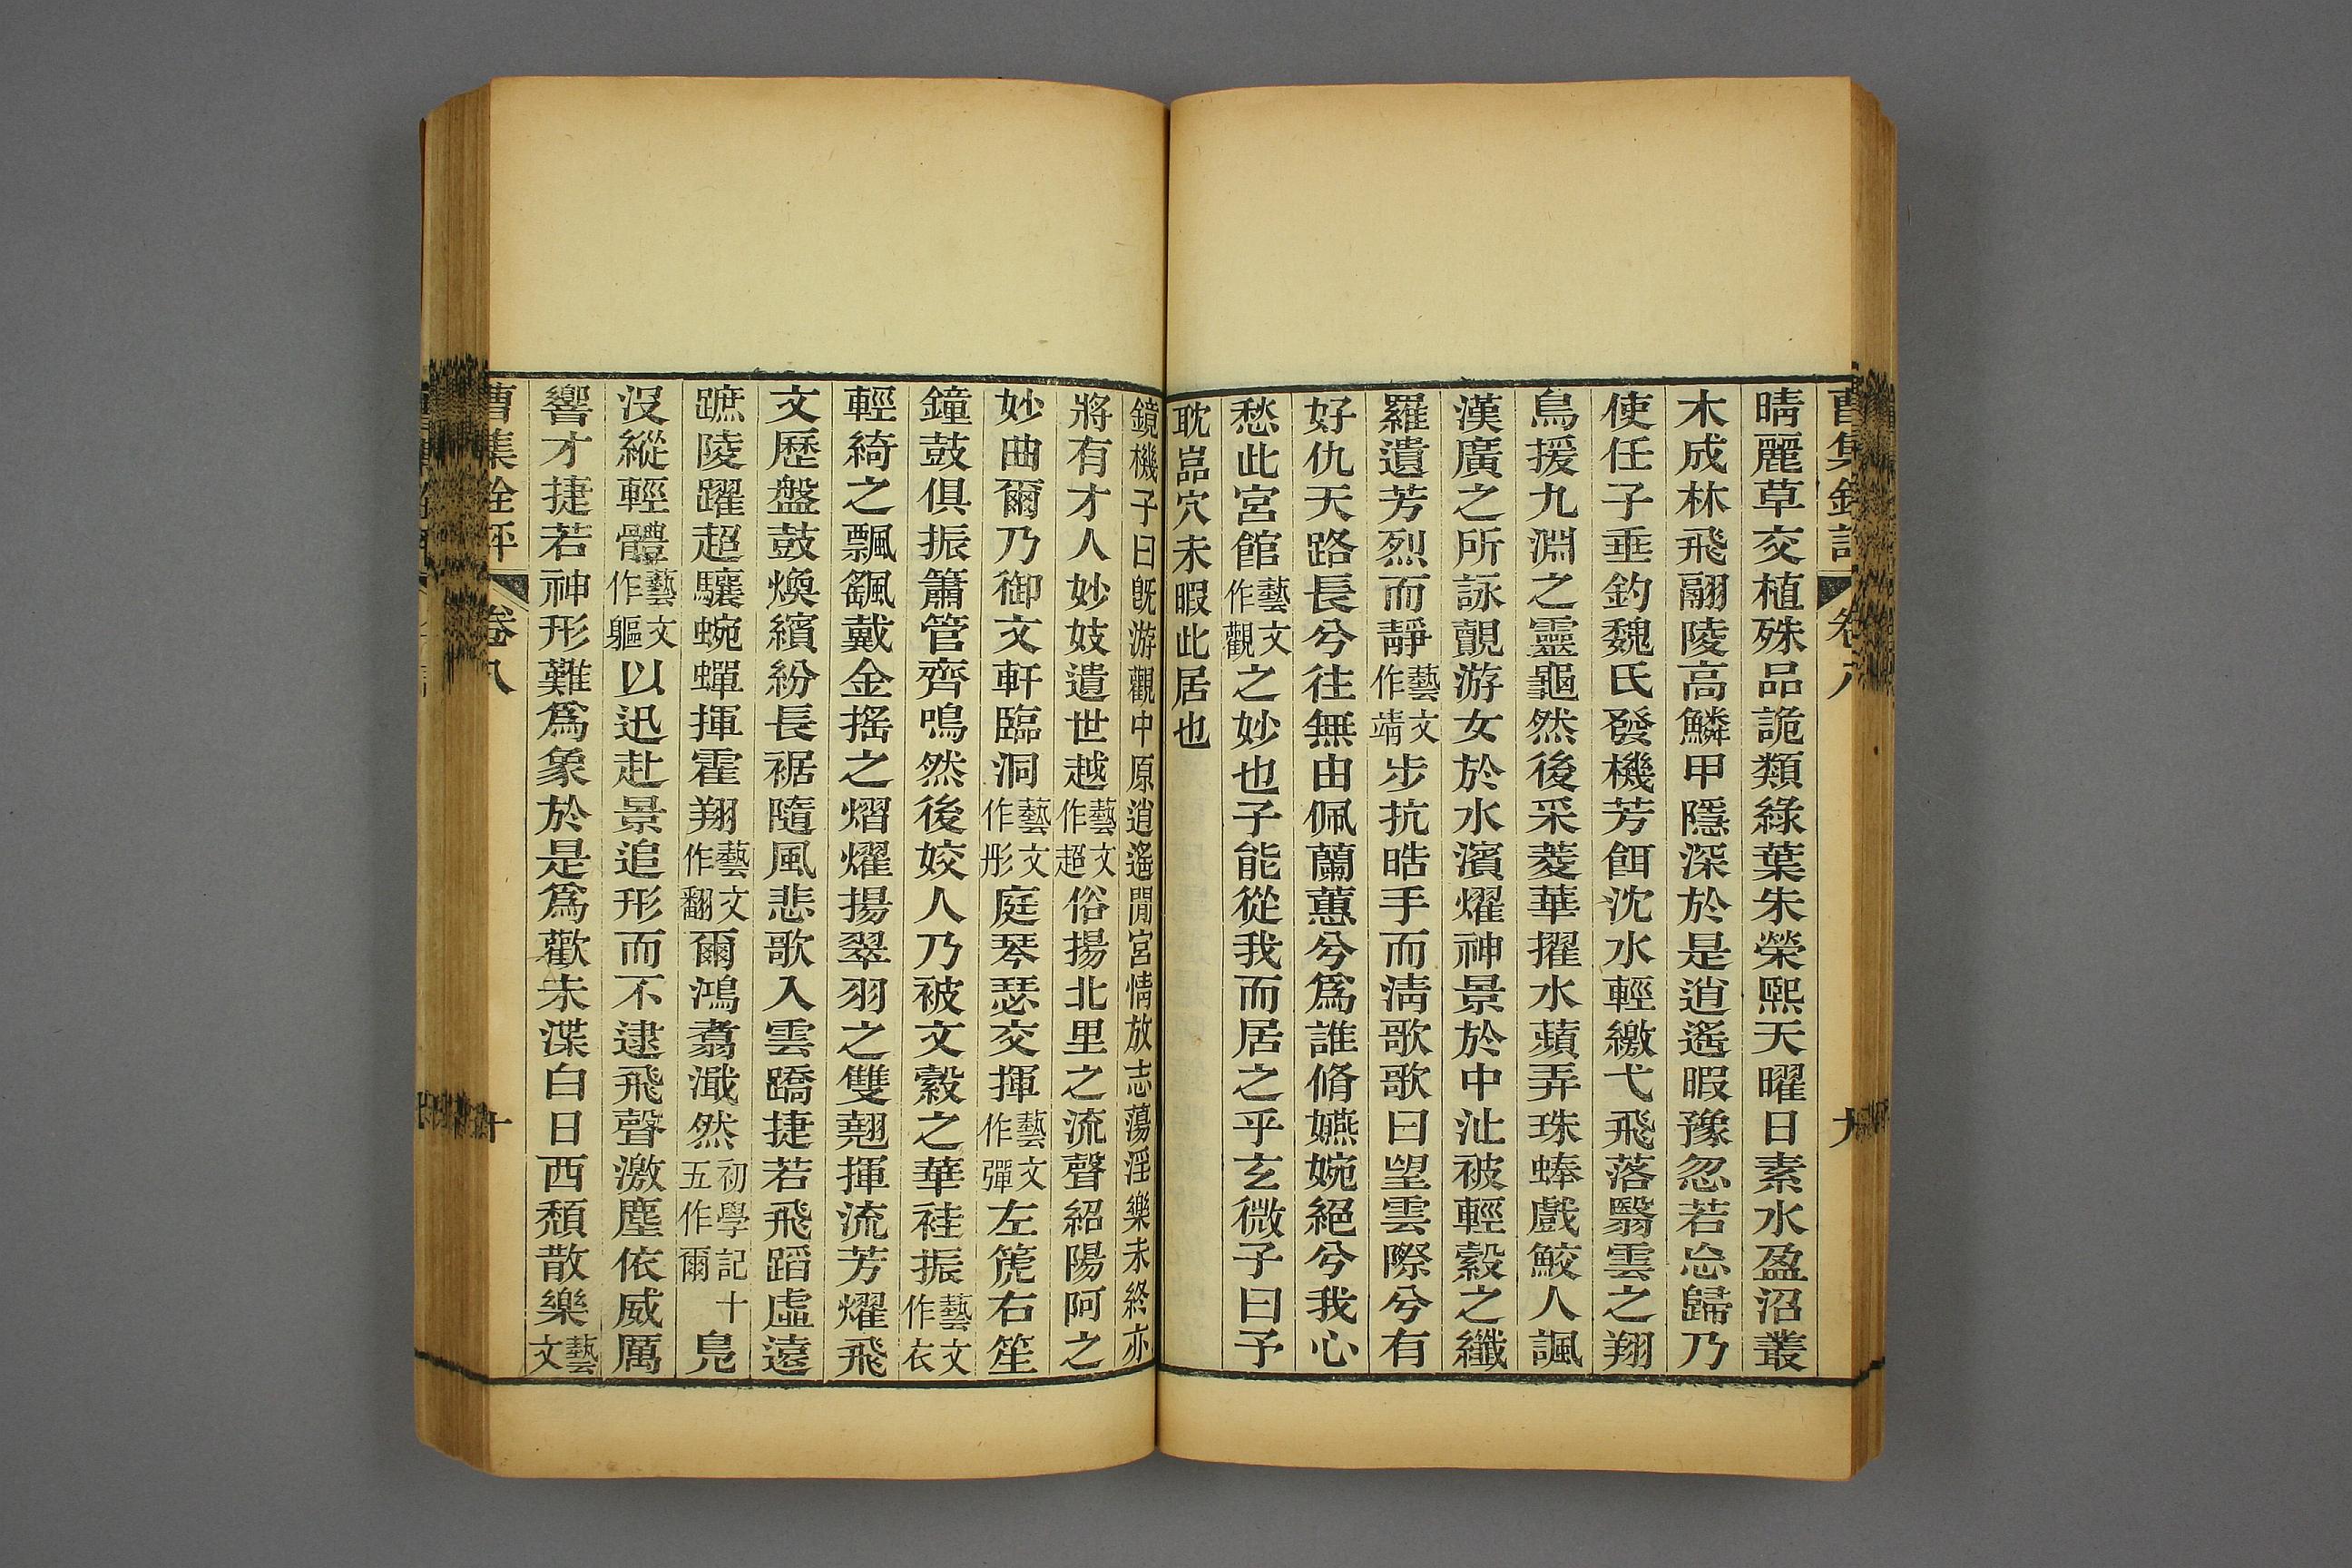 曹集銓評 卷八 九
晴麗草交植殊品詭類綠葉朱榮熙天曜日素水盈沼叢
木成林飛翮陵高鱗甲隱深於是逍遙暇豫忽若忘歸乃
使任子垂釣魏氏發機芳餌沈水輕繳弋飛落翳雲之翔
鳥援九淵之靈龜然後采菱華擢水蘋弄珠蜯戲鮫人諷
漢廣之所詠覿游女於水濱燿神景於中沚被輕縠之纖
羅遺芳烈而靜藝文作靖步抗皓手而清歌歌曰望雲際兮有
好仇天路長兮往無由佩蘭蕙兮爲誰脩嬿婉絕兮我心
愁此宮館藝文作觀之妙也子能從我而居之乎玄微子曰予
耽嵓穴未暇此居也
鏡機子曰旣游觀中原逍遙閒宮情放志蕩淫樂未終亦
將有才人妙妓遺世越藝文作超俗揚北里之流聲紹陽阿之
妙曲爾乃御文軒臨洞藝文作彤庭琴瑟交揮藝文作彈左箎右笙
鐘鼓俱振簫管齊鳴然後姣人乃被文縠之華袿振藝文作衣
輕綺之飄颻戴金搖之熠燿揚翠羽之雙翹揮流芳燿飛
文歷盤鼓煥繽紛長裾隨風悲歌入雲蹻捷若飛蹈虛遠
蹠陵躍超驤蜿蟬揮霍翔藝文作翻爾鴻翥濈然初學記十五作爾鳧
沒縱輕體藝文作軀以迅赴景追形而不逮飛聲激塵依威厲
響才捷若神形難爲象於是爲歡未渫白日西頹散樂藝文
曹集銓評 卷八 十